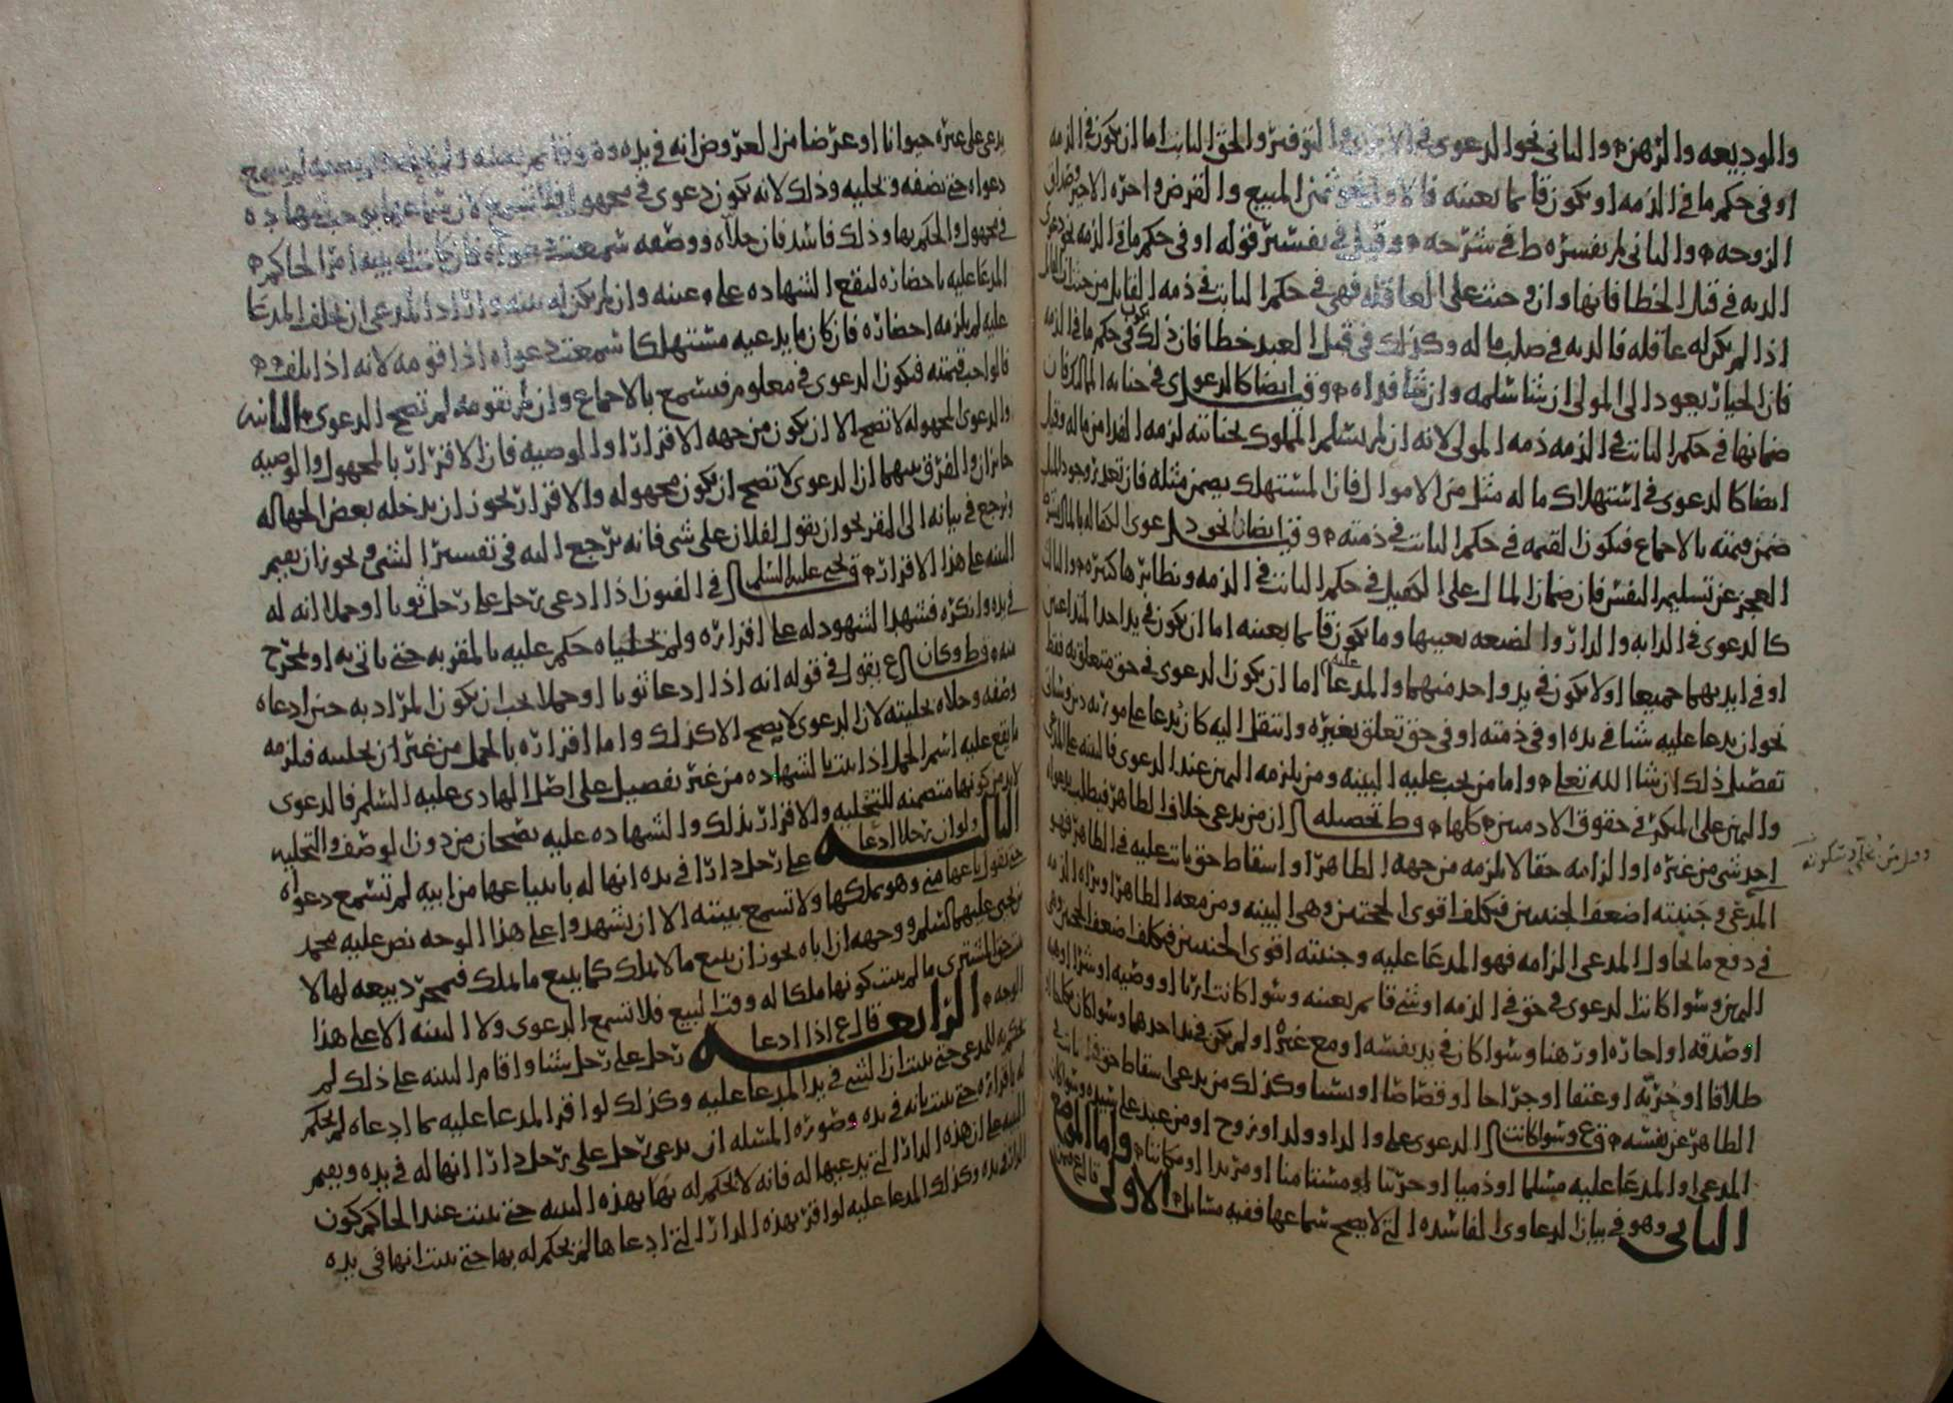 والوديعه والرهن والثاني نحو الدعوى في والتوقير والحق الثابت اما ان يكون في الذمه
او في حكم ما في الذمه او يكون قائما بعينه فالاول نحو ثمن المبيع والقرض واجره الاجير وصداق
الزوجه والثاني لم يفسره ط في شرحه وقيل في تفسير قوله او في حكم ما في الذمه نحو دعوى
الديه في قتل الخطا فانها وان وجبت على العاقله فهي في حكم الثابت في ذمه القاتل من حيث ان القاتل
اذا لم يكن له عاقله فالديه في صلب ماله وكذلك في قتل العبد خطا فان ذلك يكون في حكم ما في الذمه
فان الخيار يعود الى المولى ان شا سلمه وان شا فداه وق ايضا كالدعوى في جنايه المالك فان
ضمانها في حكم الثابت في الذمه ذمه المولى لانه ان لم يسلم المملوك بجنايته لزمه الفدا من ماله وقيل
ايضا كالدعوى في استهلاك ما له مثل من الاموال فان المستهلك يضمن مثله فان تعذر وجود المثل
ضمن قيمته بالاجماع فتكون القيمه في حكم الثابت في ذمته وق ايضا نحو دعوى الكفاله بالمال بشرط
العجز عن تسليم النفس فان ضمان المال على الكفيل في حكم الثابت في الذمه ونظائرها كثيره والثالث
كالدعوى في الدابه والدار والضيعه بعينها وما يكون قائما بعينه اما ان يكون في يد احد المتداعيين
او في ايديهما جميعا او لا يكون في يد واحد منهما والمدعا عليه اما ان يكون الدعوى في حق متعلق به فقط
نحو ان يدعا عليه شيا في يده او في ذمته او في حق تعلق بغيره وانتقل اليه كان يدعا على مورثه دين وسياتي
تفصيل ذلك ان شا الله تعلى واما من يجب عليه البينه ومن يلزمه اليمين عند الدعوى فالبينه على المدعي
واليمين على المنكر في حقوق الادميين كلها وط تحصيله ان من يدعى خلاف الظاهر فيطلب بدعواه
احد شى من غيره او الزامه حقا لا يلزمه من جهه الظاهر او اسقاط حق ثابت عليه في الظاهر فهو
المدعي وجنبته اضعف الجنبتين فيكلف اقوى الحجتين وهى البينه ومن معه الظاهر او براه الذمه
في دفع ما يحاول المدعى الزامه فهو المدعا عليه وجنبته اقوى الجنبتين فيكلف اضعف الحجتين وهي
اليمين وسوا كانت الدعوى في حق في الذمه او شى قائم بعينه وسوا كانت ارثا او وصيه او شرا او هبه
او صدقه او اجاره او رهنا وسوا كان في يد نفسه او مع غيره او لم يكن في يد احدهما وسوا كان نكاحا او
طلاقا او حريه او عتقا او جراحا او قصاصا او نسبا وكذلك من يدعى اسقاط حق ثابت في
الظاهر عن نفسه وسوا كانت الدعوى على والد او ولد او زوج او من عبد على سيده وسوا كان
المدعى او المدعا عليه مسلما او ذميا او حربيا مستامنا او مرتدا او مكاتبا واما الموضع
الثاني وهو في بيان الدعاوى الفاسده التي لا يصح سماعها ففيه مسائل الاولى
يدعى على غيره حيوانا او عرضا من العروض انه في يده
دعواه حتى يصفه ويحليه وذلك لانه يكون دعوى في مجهول
في مجهول والحكم بها وذلك فاسد فان حلاه ووصفه سمعت دعواه فان كانت له بينه امر الحاكم
المدعا عليه باحضاره لتقع الشهاده على عينه وان لم يكن له بينه واراد المدعى ان يحلف المدعا
عليه لم يلزمه احضاره فان كان ما يدعيه مستهلكا سمعت دعواه اذا قومه لانه اذا تلف
فالواجب قيمته فيكون الدعوى في معلوم فيسمع بالاجماع وان لم يقومه لم تصح الدعوى الثانيه
والدعوى المجهوله لا تصح الا ان يكون من جهه الاقرار او الوصيه فان الاقرار بالمجهول والوصيه
جائزان والفرق بينهما ان الدعوى لا تصح ان يكون مجهوله والاقرار يجوز ان يدخله بعض الجهاله
ويرجع في بيانه الى المقر نحو ان يقول لفلان على شى فانه يرجع اليه في تفسير الشى ويجوز ان يقيم
البينه على هذا الاقرار ق يحيى عليه السلم في الفنون اذا ادعى رجل على رجل ثوبا او حملا انه له
في يده وانكره فشهد الشهود له على اقراره ولم يحلياه حكم عليه بالمقر به حتى ياتي به او يخرج
منه ط وكان ع يقول في قوله انه اذا ادعا ثوبا او حملا يجب ان يكون المراد به حين ادعاه
وصفه وحلاه بحليته لان الدعوى لا يصح الا كذلك واما اقراره بالحمل من غير ان يحليه فلزمه
ما يقع عليه اسم الحمل اذا ثبت بالشهاده من غير تفصيل على اصل الهادى عليه السلم فالدعوى
لابد من كونها متضمنه للتحليه والاقرار بذلك والشهاده عليه يصحان من دون الوصف والتحليه
الثالثه ولو ان رجلا ادعا على رجل دارا في يده انها له بانه ابتاعها من ابيه لم تسمع دعواه
حتى يقول باعها منى وهو يملكها ولا تسمع بينته الا ان يشهدوا على هذا الوجه نص عليه محمد
بن يحيى عليهما السلم ووجهه ان اباه يجوز ان يبيع ما لا يملك كما يبيع ما يملك فمجرد بيعه لها لا
يحق المشترى ما لم يثبت كونها ملكا له وقت البيع فلا تسمع الدعوى ولا البينه الا على هذا
الوجه الرابعه قال ع اذا ادعا رجل على رجل شيا واقام البينه على ذلك لم
يحكم به للمدعى حتى يثبت ان الشى في يد المدعا عليه وكذلك لو اقر المدعا عليه بما ادعاه لم يحكم
له باقراره حتى يثبت بانه في يده وصوره المسئله ان يدعى رجل على رجل دارا انها له في يده ويقيم
البينه على ان هذه الدار التي يدعيها له فانه لا يحكم له بها بهذه البينه حتى يثبت عند الحاكم كون
الدار في يده وكذلك المدعا عليه لو اقر بهذه الدار التي ادعاها لم يحكم له بها حتى يثبت انها في يده